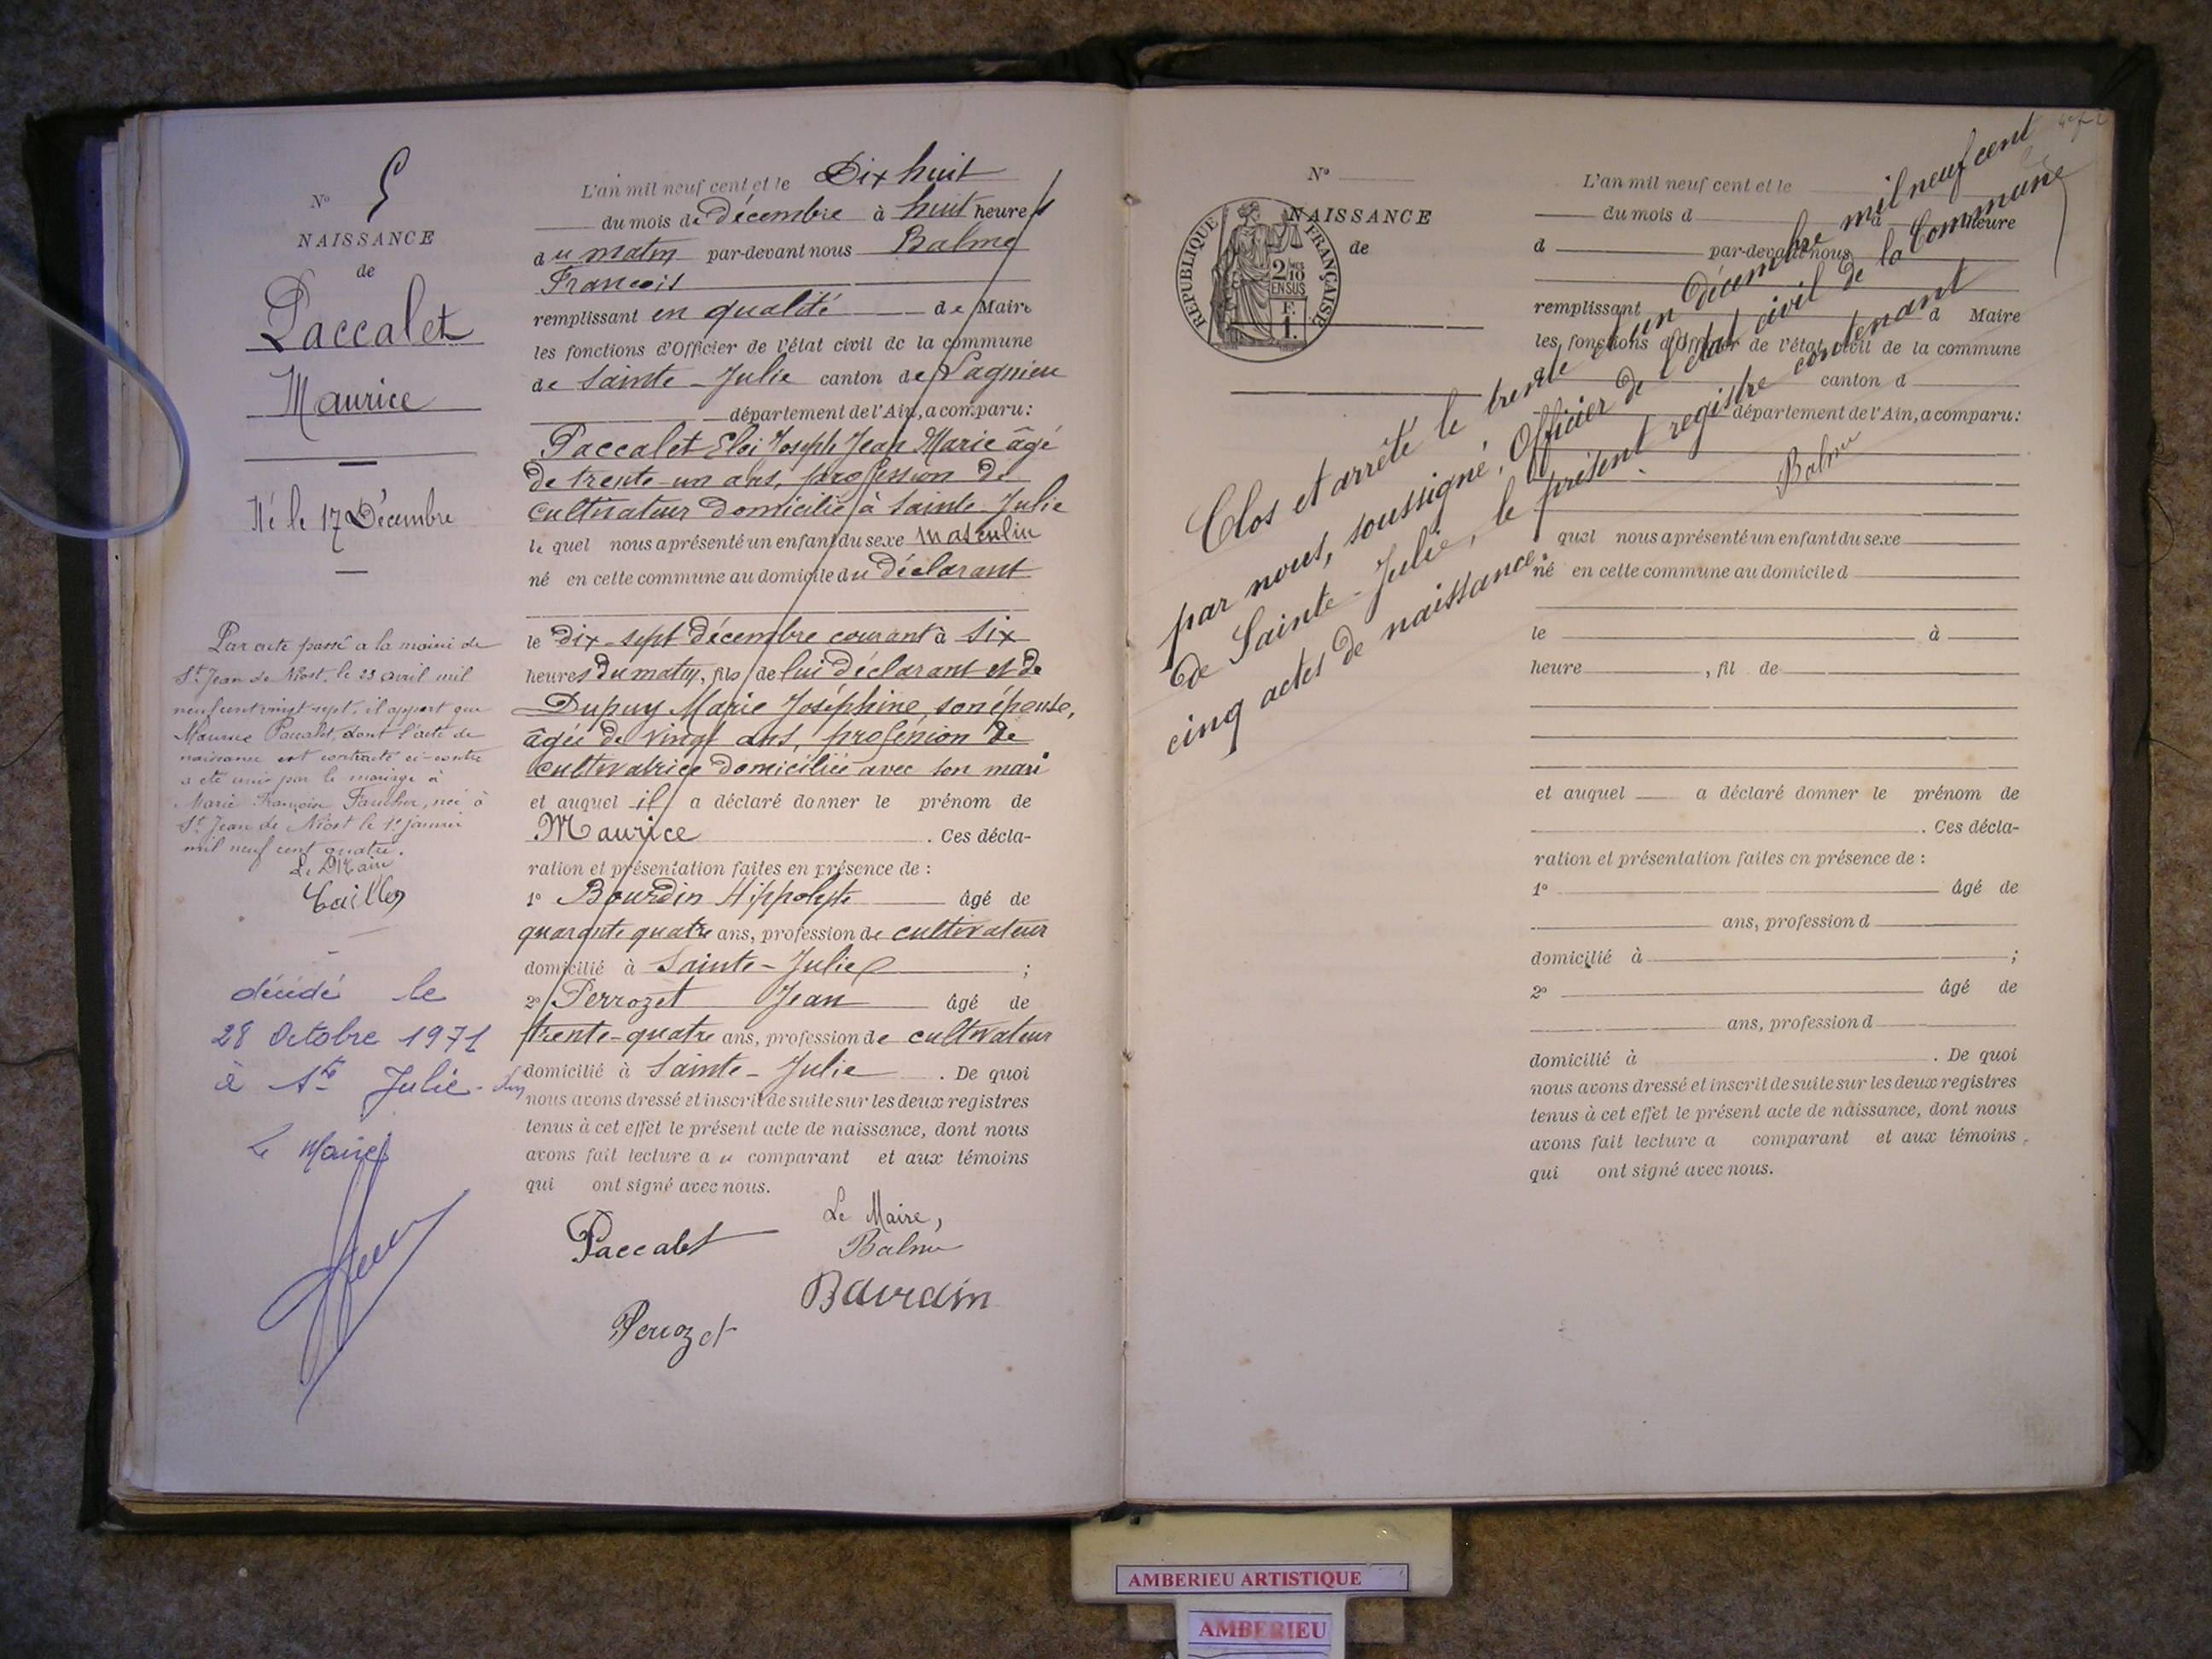 N° 5
NAISSANCE
de
Paccalet
Maurice
Né le 17 Décembre
Par acte passé a la mairie de
St Jean de Niost, le 23 avril mil
neuf cent vingt sept, il appert que
Maurice Paccalet, dont l'acte de
naissance est contracté ci-contre
a été unis par le mariage à
Marie Françoise Faucher, née à
St Jean de Niost le 1er janvier
mil neuf cent quatre.
Le Maire
décédé le
28 Octobre 1971
à Ste Julie
Le Maire
L'an mil neuf cent et le Dix huit
du mois de décembre à huit heures
du matin par-devant nous Balme
François
remplissant en qualité de Maire
les fonctions d'Officier de l'état civil de la commune
de Sainte-Julie canton de Lagnieu
département de l'Ain, a comparu:
Paccalet Eloi Joseph Jean Marie âgé
de trente-un ans, profession de
cultivateur domicilié à Sainte-Julie
le quel nous a présenté un enfant du sexe masculin
né en cette commune au domicile du déclarant
le dix-sept décembre courant à six
heures du matin, fils de lui déclarant et de
Dupuy Marie Joséphine, son épouse,
âgée de vingt ans, profession de
cultivatrice domiciliée avec son mari
et auquel il a déclaré donner le prénom de
Maurice . Ces décla-
ration et présentation faites en présence de :
1° Bourdin Hippolyte âgé de
quarante quatre ans, profession de cultivateur
domicilié à Sainte-Julie ;
2° Perrozet Jean âgé de
trente-quatre ans, profession de cultivateur
domicilié à Sainte-Julie . De quoi
nous avons dressé et inscrit de suite sur les deux registres
tenus à cet effet le présent acte de naissance, dont nous
avons fait lecture au comparant et aux témoins
qui ont signé avec nous.
Le Maire,
Paccalet Balme
Bourdin
Perrozet
N°
NAISSANCE
de
RÉPUBLIQUE FRANÇAISE
2/10
EN SUS
F.
1.
L'an mil neuf cent et le
du mois d à heure
d par-devant nous
remplissant d Maire
les fonctions d'Officier de l'état civil de la commune
d canton d
département de l'Ain, a comparu:
Clos et arrêté le trente et un décembre mil neuf cent
par nous, soussigné, Officier de l'état civil de la Commune
de Sainte-Julie, le présent registre contenant
cinq actes de naissance.
Balme
quel nous a présenté un enfant du sexe
né en cette commune au domicile d
le à
heure , fil de
et auquel a déclaré donner le prénom de
. Ces décla-
ration et présentation faites en présence de :
1° âgé de
ans, profession d
domicilié à ;
2° âgé de
ans, profession d
domicilié à . De quoi
nous avons dressé et inscrit de suite sur les deux registres
tenus à cet effet le présent acte de naissance, dont nous
avons fait lecture a comparant et aux témoins
qui ont signé avec nous.
AMBERIEU ARTISTIQUE
AMBERIEU